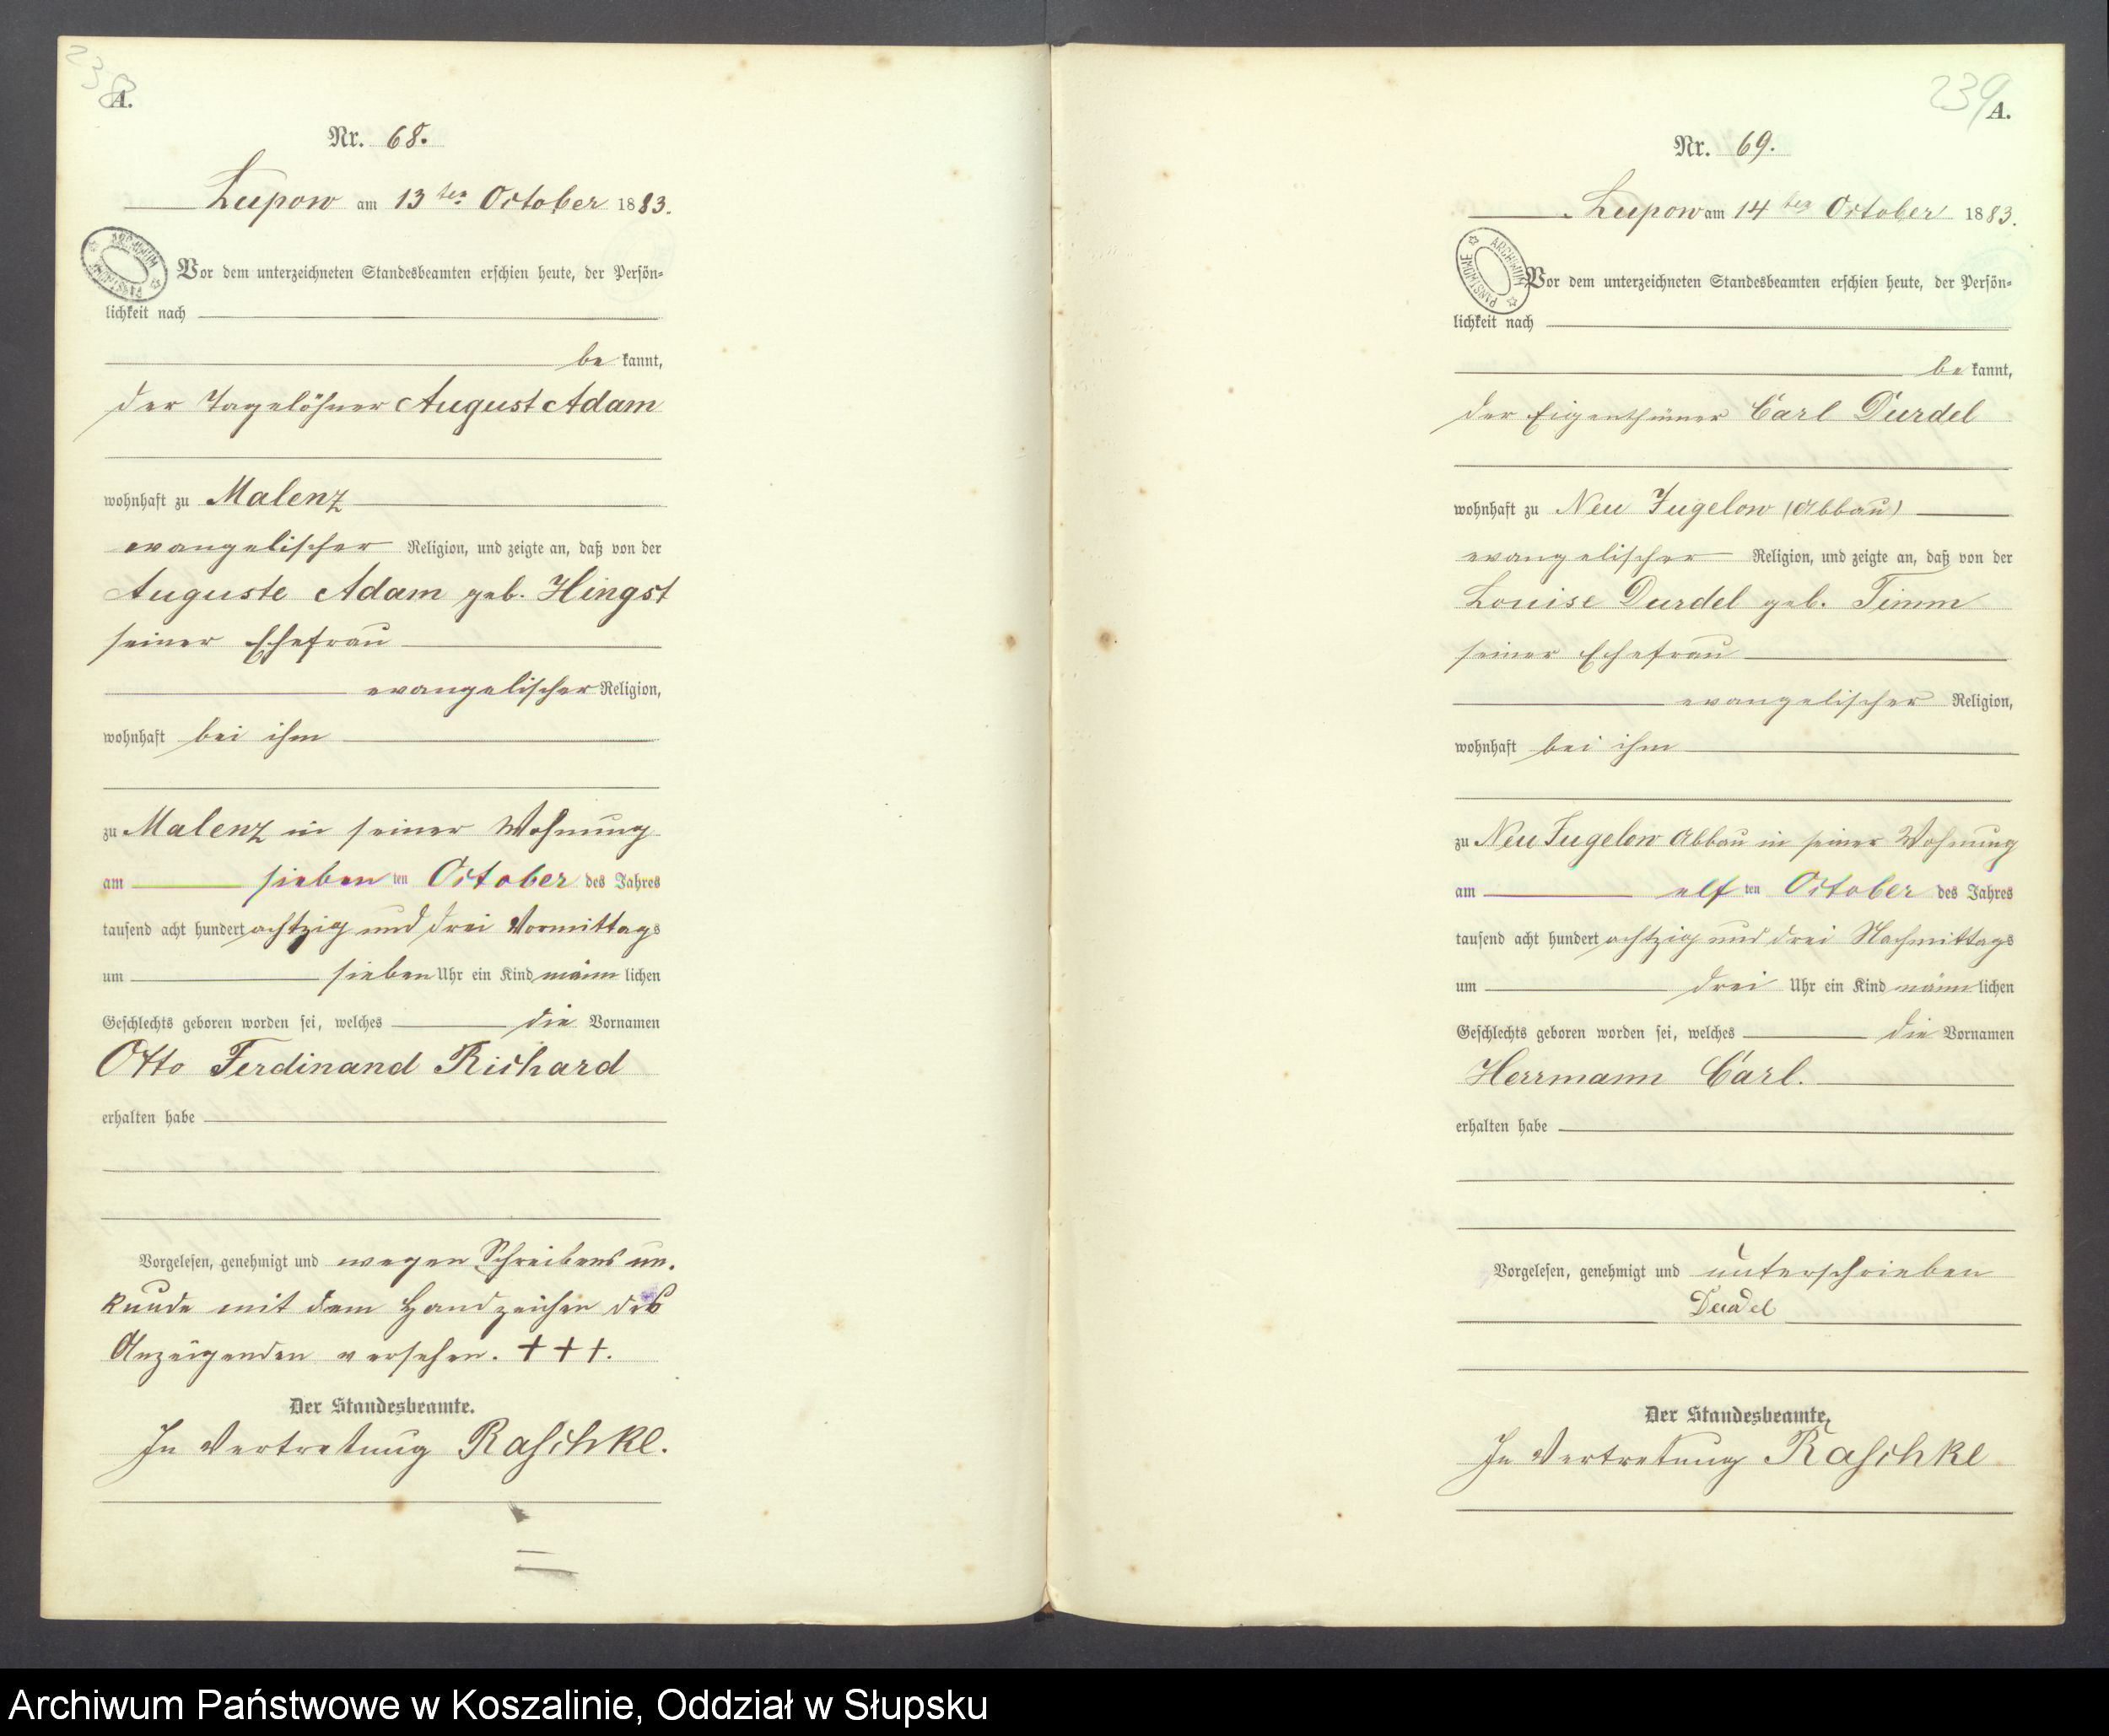 238
A.
Nr. 68.
Lupow am 13ten October 1883.
ARCHIWUM PAŃSTWOWE
Vor dem unterzeichneten Standesbeamten erschien heute, der Persön-
lichkeit nach
be kannt,
der Tagelöhner August Adam
wohnhaft zu Malenz
evangelischer Religion, und zeigte an, daß von der
Auguste Adam geb. Hingst
seiner Ehefrau
evangelischer Religion,
wohnhaft bei ihm
zu Malenz in seiner Wohnung
am sieben ten October des Jahres
tausend acht hundert achtzig und drei Vormittags
um sieben Uhr ein Kind männ lichen
Geschlechts geboren worden sei, welches die Vornamen
Otto Ferdinand Richard
erhalten habe
Vorgelesen, genehmigt und wegen Schreibens un-
kunde mit dem Handzeichen des
Anzeigenden versehen. +++.
Der Standesbeamte.
In Vertretung Raschke.
239
A.
Nr. 69.
Lupow am 14ten October 1883.
ARCHIWUM PAŃSTWOWE
Vor dem unterzeichneten Standesbeamten erschien heute, der Persön-
lichkeit nach
be kannt,
der Eigenthümer Carl Durdel
wohnhaft zu Neu Jugelow (Abbau)
evangelischer Religion, und zeigte an, daß von der
Louise Durdel geb. Timm
seiner Ehefrau
evangelischer Religion,
wohnhaft bei ihm
zu Neu Jugelow Abbau in seiner Wohnung
am elf ten October des Jahres
tausend acht hundert achtzig und drei Nachmittags
um drei Uhr ein Kind männ lichen
Geschlechts geboren worden sei, welches die Vornamen
Herrmann Carl.
erhalten habe
Vorgelesen, genehmigt und unterschrieben
Durdel
Der Standesbeamte.
In Vertretung Raschke
Archiwum Państwowe w Koszalinie, Oddział w Słupsku